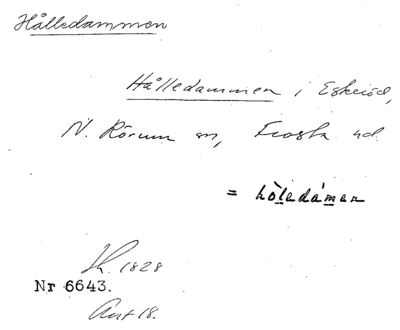 Hålledammen
Hålledammen i Eskeröd,
N. Rörum sn, Frosta hd.
= hòledámen
Sk. 1828
Nr 6643.
Ant 18.